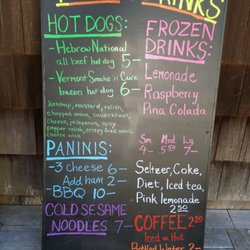 DRINKS
HOT DOGS:
- Hebrew National
all beef hot dog 5-
- Vermont Smoke n' Cure
bacon hot dog 6-
Ketchup, mustard, relish,
chopped onion, sauerkraut,
cheese, jalapenos, spicy
pepper relish, crispy fried onions,
PANINIS:
- 3 cheese 6-
Add ham 2-
- BBQ 10-
COLD SESAME
NOODLES 7-
FROZEN
DRINKS:
Lemonade
Raspberry
Pina Colada
Sm. Med. Lg.
4- 5.50 7-
Seltzer, Coke,
Diet, Iced tea,
Pink lemonade
2.50
COFFEE 2.50
Iced or Hot
Bottled Water 2-